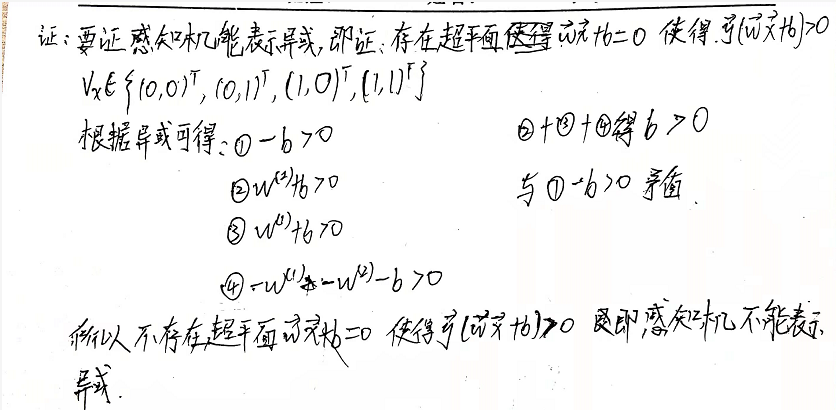 证：要证感知机能表示异或，即证：存在超平面使得w⃗x⃗+b=0 使得 y⃗(w⃗x⃗+b)>0
∀x∈{(0,0)ᵀ, (0,1)ᵀ, (1,0)ᵀ, (1,1)ᵀ}
根据异或可得：① -b>0
② w⁽²⁾+b>0
③ w⁽¹⁾+b>0
④ -w⁽¹⁾-w⁽²⁾-b>0
②+③+④得 b>0
与① -b>0 矛盾.
所以不存在超平面w⃗x⃗+b=0 使得 y⃗(w⃗x⃗+b)>0 即感知机不能表示
异或.